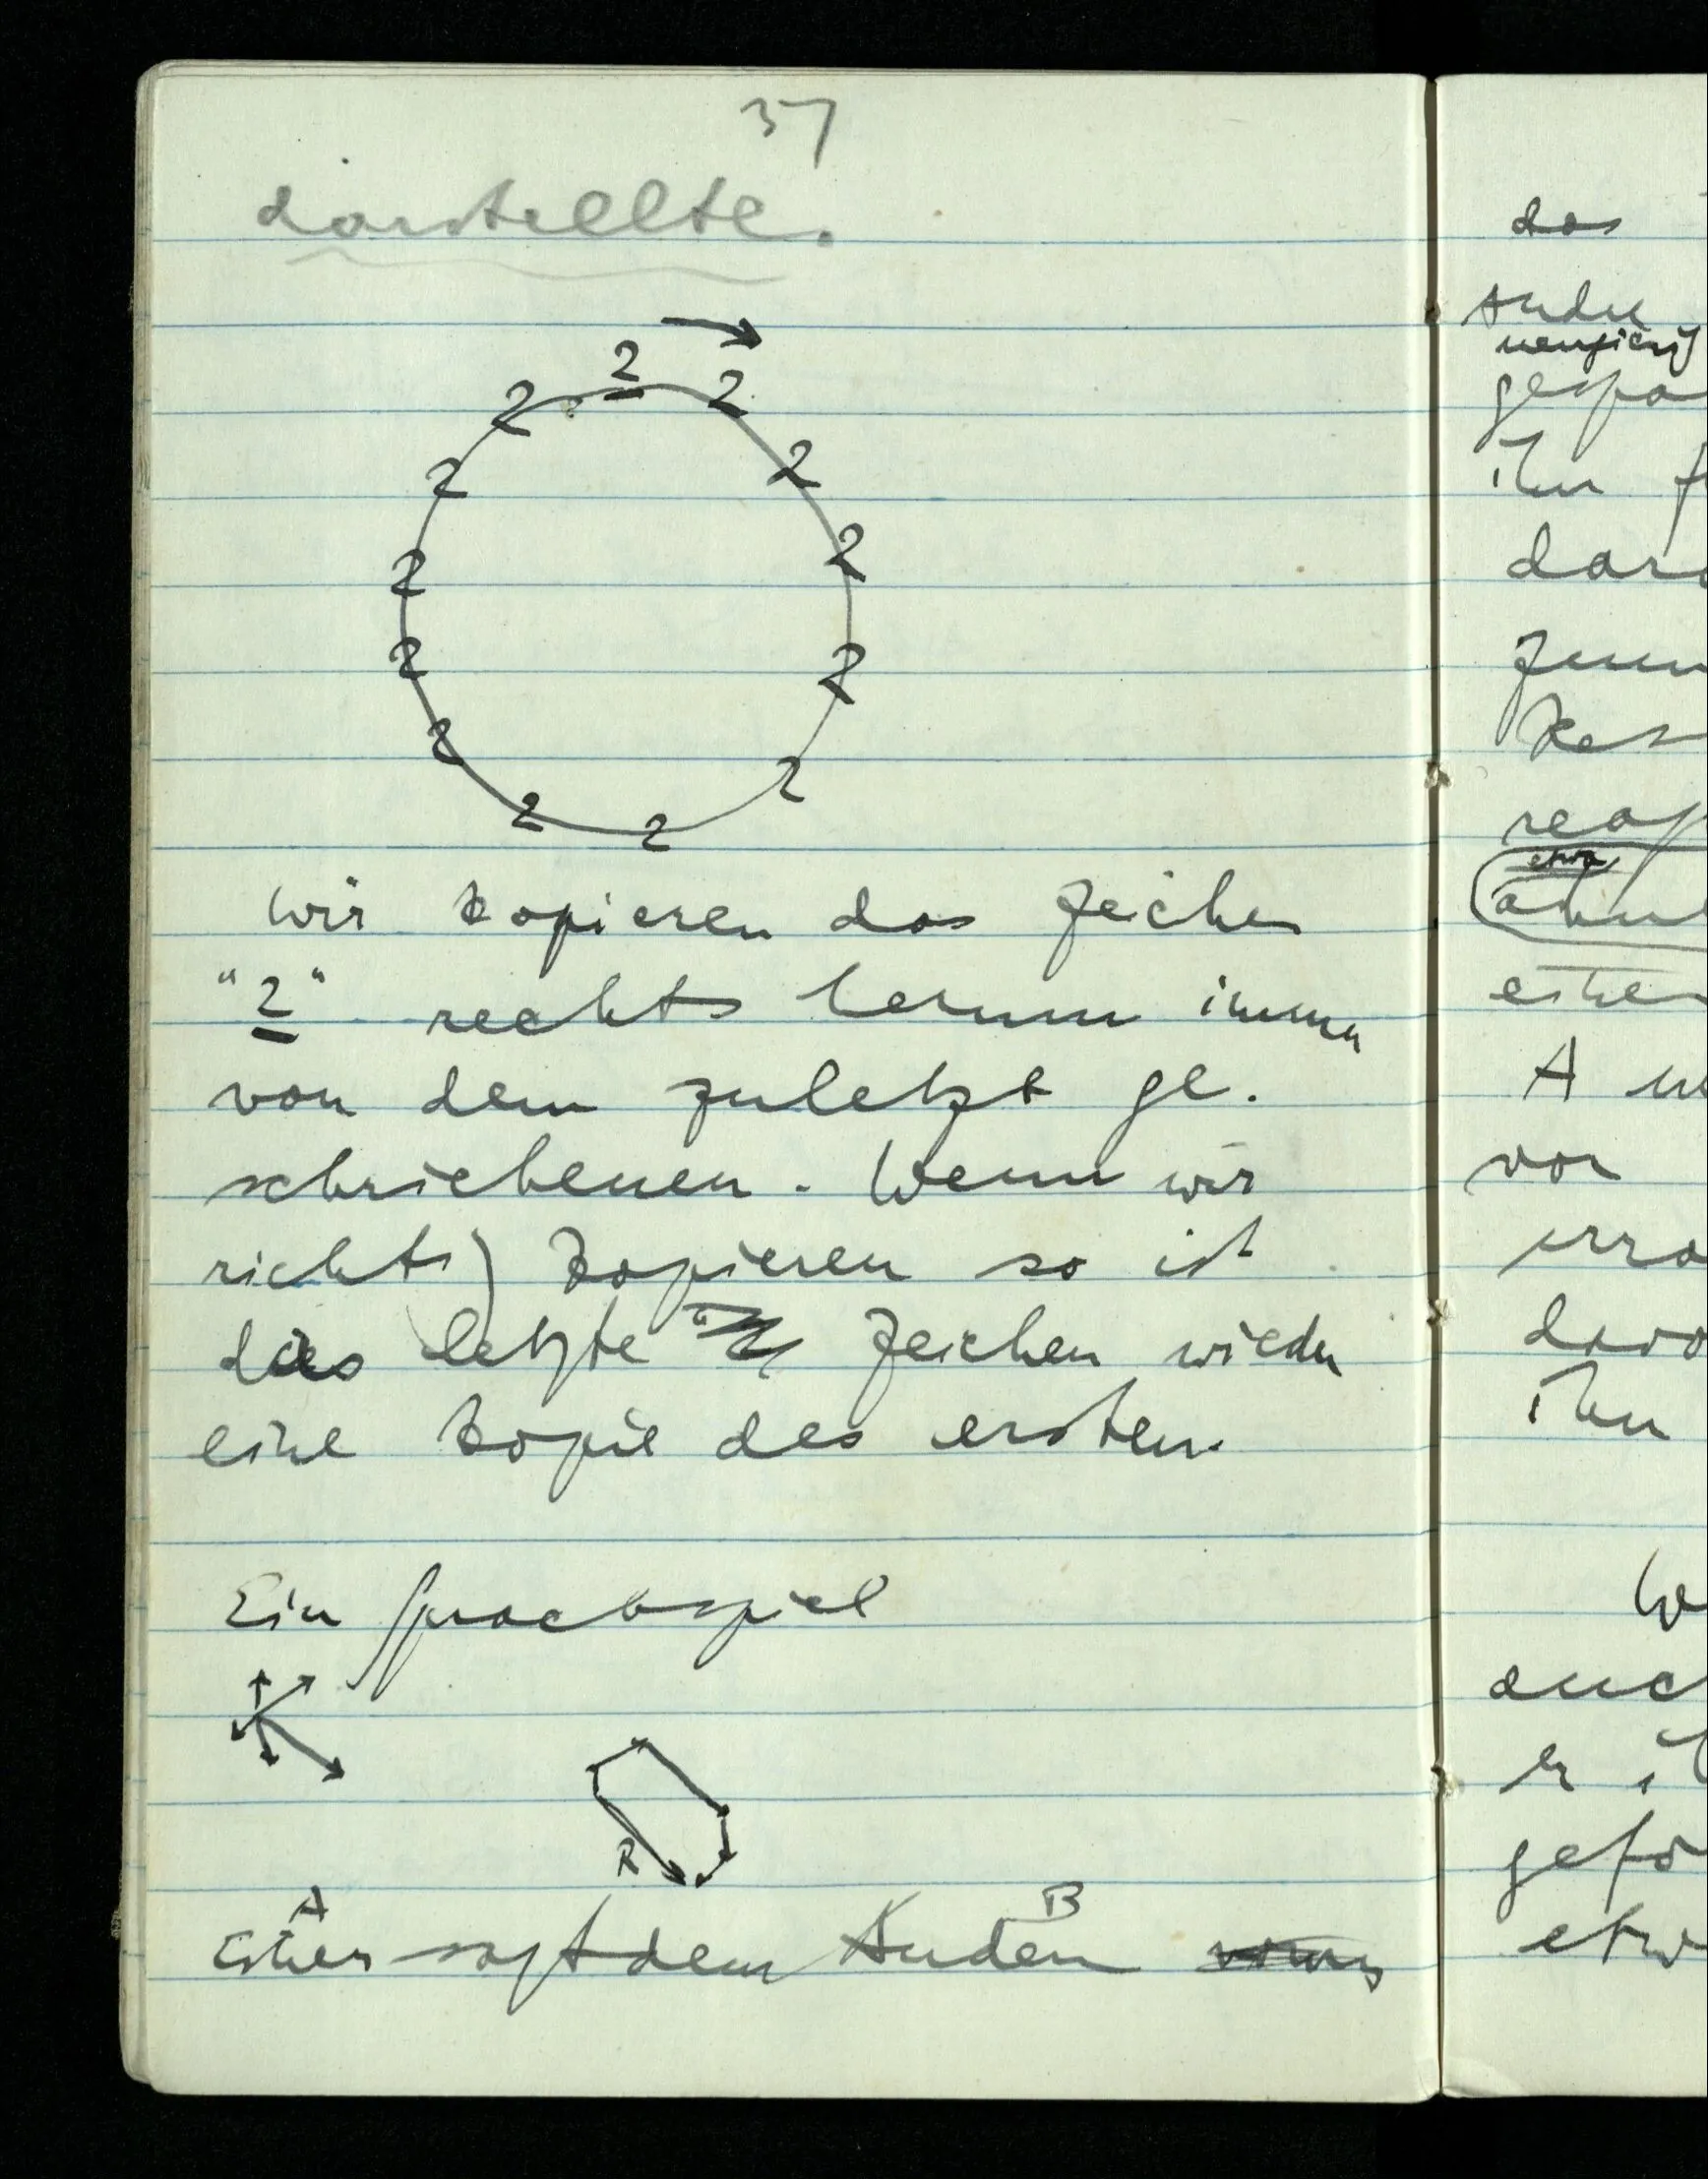 37
darstellte.
2 2 2 2 2 2 2 2 2 2 2 2 2 2
Wir kopieren das Zeichen
"2" rechts herum immer
von dem zuletzt ge-
schriebenen. Wenn wir
richtig kopieren so ist
das letzte Zeichen wieder
eine Kopie des ersten.
Ein Sprachspiel
R
A B
Einer sagt dem Andern
das
Andere
neugierig
gespa
ihn
dara
etwa
A
vor
ihn
auch
er
etw